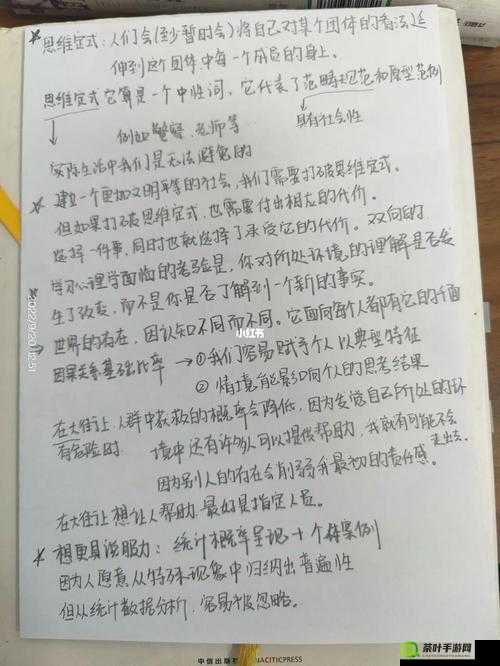 * 思维定式:人们会(至少暂时会)将自己对某个团体的看法延
伸到这个团体中每一个成员的身上。
思维定式它算是一个中性词,它代表了范畴规范和原型范例
例如警察、老师等
具有社会性
实际生活中我们是无法避免的
* 建立一个更加文明平等的社会,我们需要打破思维定式。
但如果打破思维定式,也需要付出相大的代价。
选择一件事,同时也就选择了承受它的代价。双向的
* 学习心理学面临的考验是,你对所处环境的理解是否发
生了改变,而不是你是否了解到一个新的事实。
世界的存在,因认知不同而不同。它面向每个人都有它的千面
因果关系基础比率 → ①我们容易赋予个人以典型特征
②情境能影响个人的思考结果
在大街上,人群中获救的概率会降低,因为发觉自己所处的环
有危险时 境中还有许多人可以提供帮助,我就有可能不会
走出去。
因为别人的存在会削弱我最初的责任感
在大街上想让人帮助,最好是指定人员。
* 想更具说服力:统计概率呈现+个体案例
因为人愿意从特殊现象中归纳出普遍性
但从统计数据分析,容易被忽略。
2022/9/20 12:51
小红书
中信出版
CITICPRESS
茶叶手游网